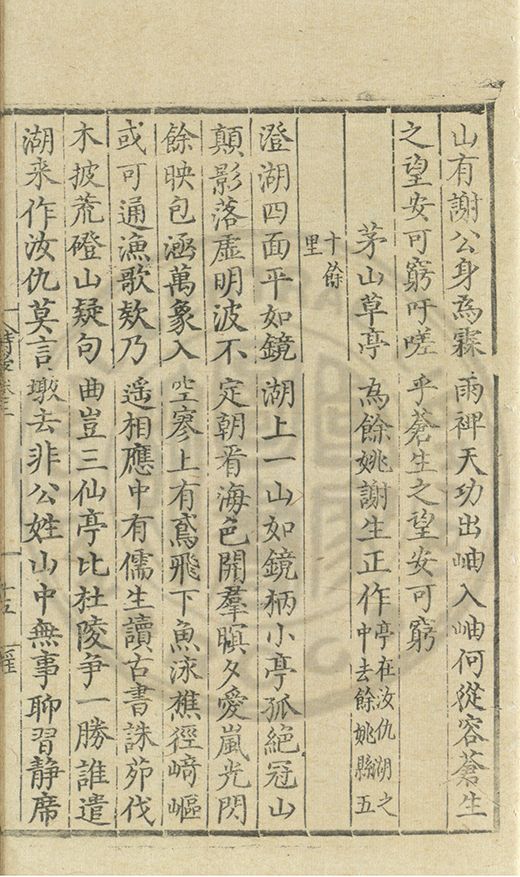 山有謝公身為霖雨裨天功出岫入岫何從容蒼生
之望安可窮吁嗟乎蒼生之望安可窮
茅山草亭為餘姚謝生正作亭在汝仇湖之中去餘姚縣五
十餘里
澄湖四面平如鏡湖上一山如鏡柄小亭孤絕冠山
顛影落虛明波不定朝看海色開羣暝夕愛嵐光閃
餘映包涵萬象入空寥上有鳶飛下魚泳樵徑崎嶇
或可通漁歌欸乃遥相應中有儒生讀古書誅茆伐
木披荒磴山疑句曲豈三仙亭比杜陵爭一勝誰遣
湖来作汝仇莫言墩去非公姓山中無事聊習静席
十五